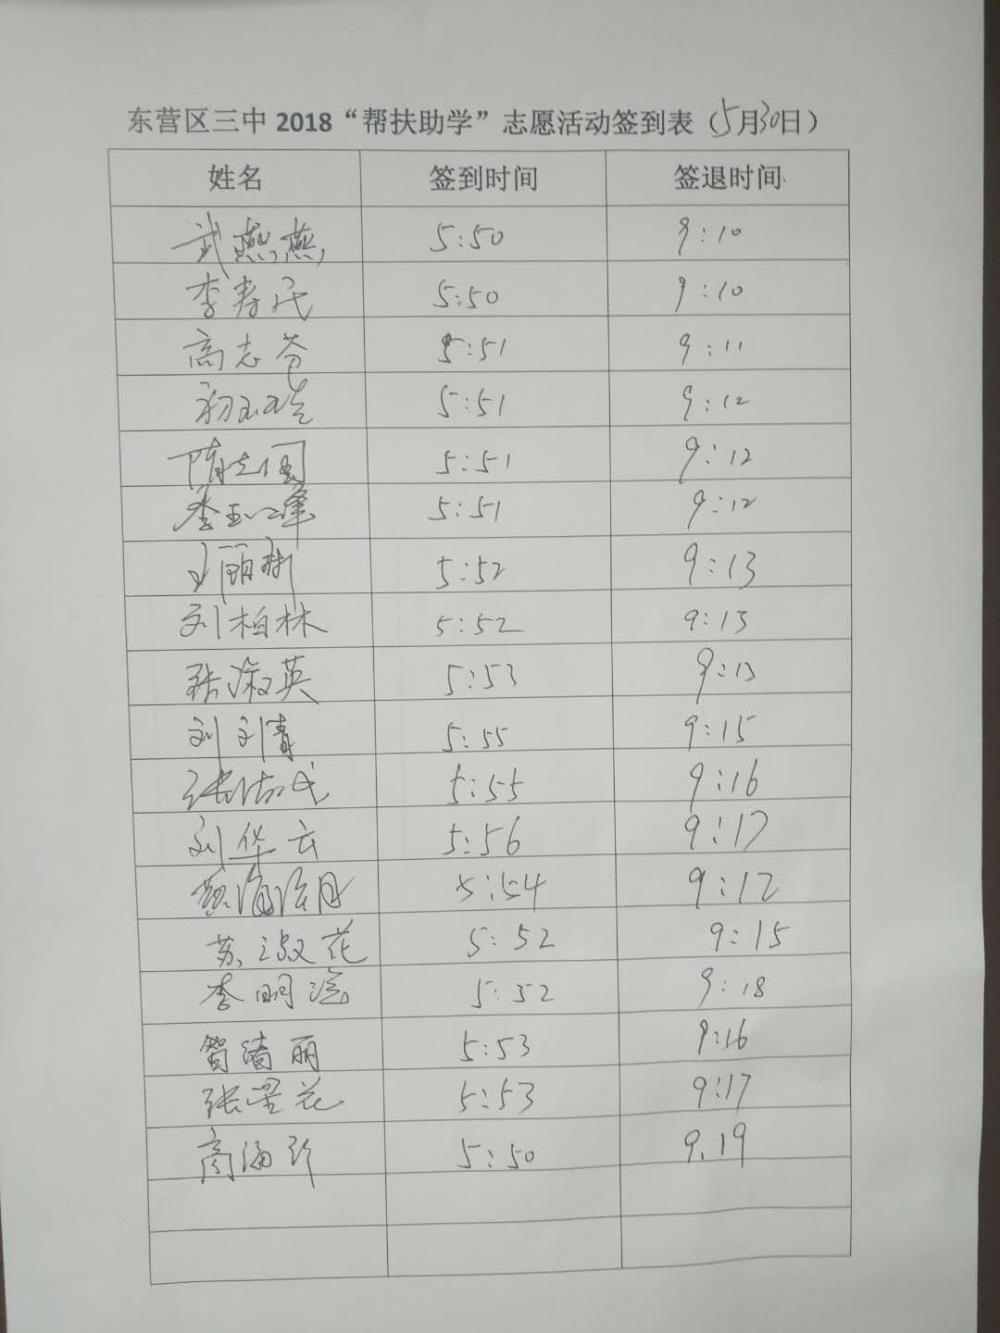 东营区三中2018“帮扶助学”志愿活动签到表（5月30日）
姓名 签到时间 签退时间
武燕燕 5:50 9:10
李寿民 5:50 9:10
高志芬 5:51 9:11
5:51 9:12
隋志国 5:51 9:12
李玉峰 5:51 9:12
王丽新 5:52 9:13
刘柏林 5:52 9:13
张淑英 5:53 9:13
刘刘青 5:55 9:15
5:55 9:16
刘华云 5:56 9:17
5:54 9:12
苏淑花 5:52 9:15
李明 5:52 9:18
丽 5:53 9:16
张 花 5:53 9:17
商海珍 5:50 9.19